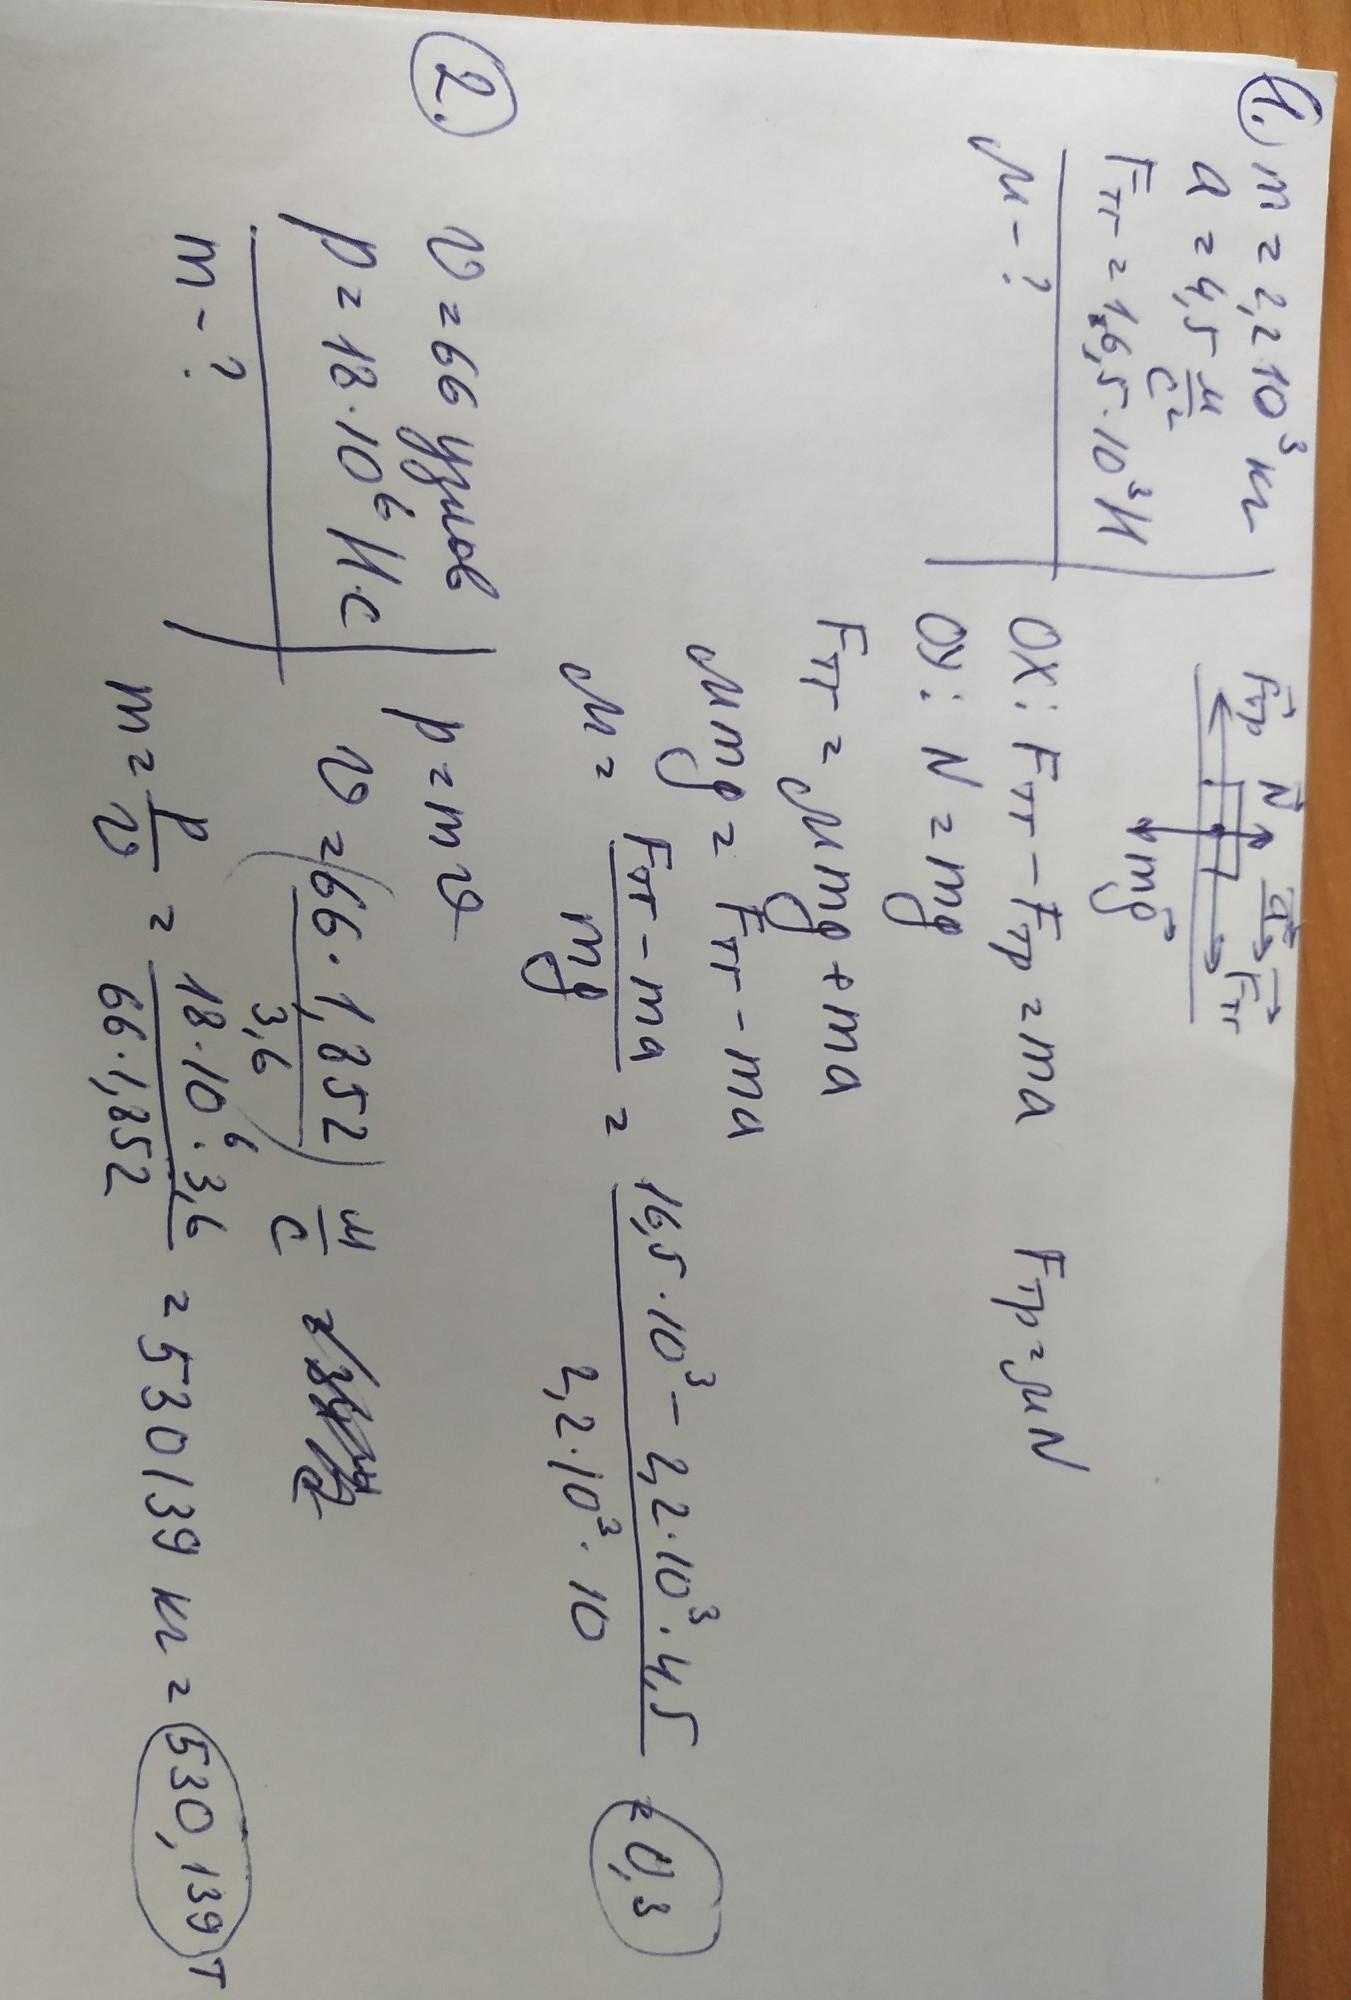 1. m = 2,2 10³ кг
a = 4,5 м/с²
Fтг = 16,5·10³ Н
μ - ?
Fтр N a Fтг
mg
OX: Fтг - Fтр = ma Fтр = μN
OY: N = mg
Fтг = μmg + ma
μmg = Fтг - ma
μ = (Fтг - ma)/(mg) = (16,5·10³ - 2,2·10³·4,5)/(2,2·10³·10) = 0,3
2. v = 66 узлов
p = 18·10⁶ Н·с
m - ?
p = mv
v = (66·1,852/3,6) м/с
m = p/v = (18·10⁶·3,6)/(66·1,852) = 530139 кг = 530,139 т